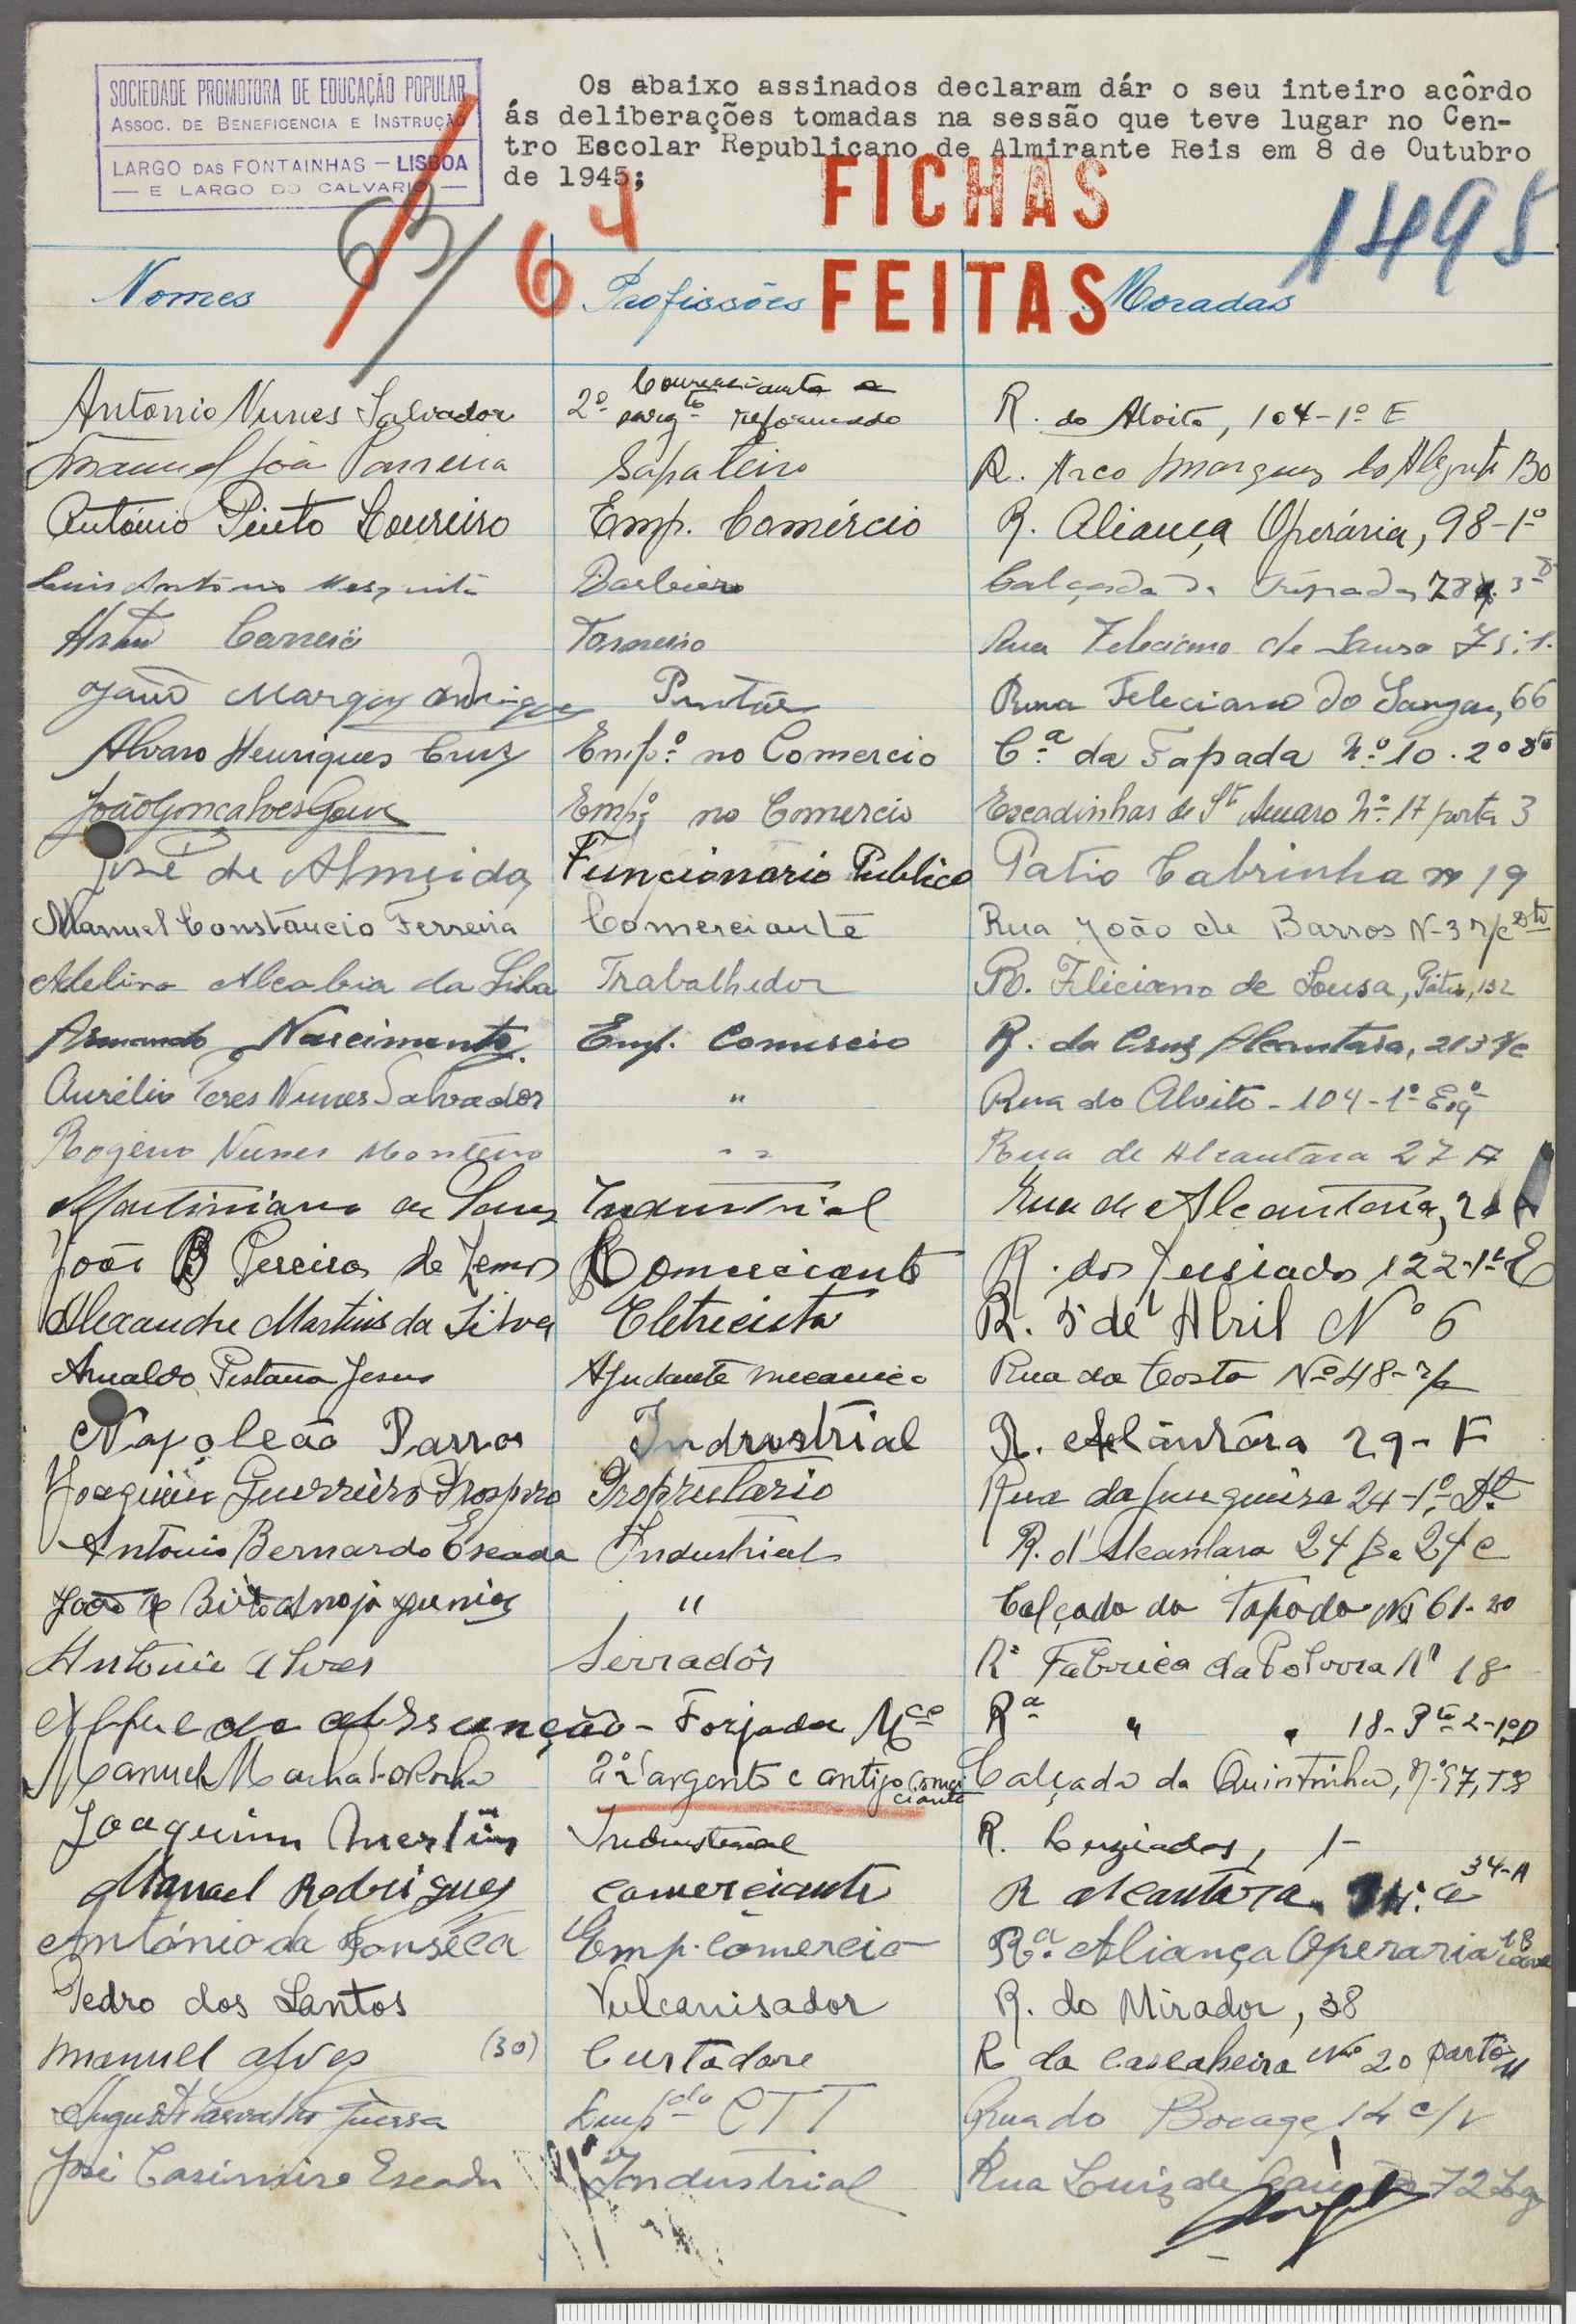 SOCIEDADE PROMOTORA DE EDUCAÇÃO POPULAR
ASSOC. DE BENEFICENCIA E INSTRUÇÃO
LARGO DAS FONTAINHAS — LISBOA
— E LARGO DO CALVARIO —
Os abaixo assinados declaram dár o seu inteiro acôrdo
ás deliberações tomadas na sessão que teve lugar no Cen-
tro Escolar Republicano de Almirante Reis em 8 de Outubro
de 1945;
FICHAS
FEITAS
63/
64
1495
Nomes Profissões Moradas
Antonio Nunes Salvador 2º sargto reformado Comerciante e R. do Alvito, 104-1º E
Manuel João Parreira Sapateiro R. Arco Marques do Alegrete 130
António Pinto Loureiro Emp. Comércio R. Aliança Operária, 98-1º
Luis Antonio Mesquita Barbeiro Calçada da Tapada 78 3º
Artur Correia Torneiro Rua Feleciano de Sousa
João Marques Pintor Rua Feleciano do Sousa, 66
Alvaro Henriques Cruz Empº no Comercio Cª da Tapada Nº 10 . 2º Dto
João Gonçalves Empº no Comercio Escadinhas de Sto Amaro Nº 17 porta 3
José de Almeida Funcionario Publico Patio Cabrinha nº 19
Manuel Constancio Ferreira Comerciante Rua João de Barros N-3 r/c Dto
Adelino Alcobia da Silva Trabalhador R. Feliciano de Sousa, Pátio, 152
Armando Nascimento Emp. Comercio R. da Cruz Alcantara, 213 r/c
Aurélio Peres Nunes Salvador " Rua do Alvito - 104 - 1º Esqº
Rogerio Nunes Monteiro " Rua de Alcantara 27 A
Martiniano de Sousa Industrial Rua de Alcantara,
João B Pereira de Lemos Comerciante R. dos Lusiadas 122-1º E
Alexandre Martins da Silva Eletricista R. 5 de Abril Nº 6
Arnaldo Pestana Jesus Ajudante mecanico Rua da Costa Nº 48-r/c
Napoleão Barros Indrustrial R. Alcântâra 29 - F
Joaquim Guerreiro Prospero Proprietario Rua da Junqueira 24-1º Dt
Antonio Bernardo Escada Industrial R. d'Alcantara 24 B e 24 C
João de Brito junior " Calçada da Tapada Nº 61-2º
Antonio Alves Serradôr Rª Fabrica da Polvora Nº 18
da Assunção - Forjador Mco Rª " " 18 - Pta 2-1º D
Manuel Machado Rocha 2º Sargento e antigo Comerciante Calçada da Quintinha, Nº 97,
Joaquim Martins Industrial R. Luziadas, 1-
Manuel Rodrigues Comerciante R Alcantara 34-A
António da Fonseca Emp. Comercio Rª Aliança Operaria 18 cave
Pedro dos Santos Vulcanisador R. do Mirador, 38
Manuel Alves (30) Curtadore R da Cascalheira Nº 20 porta 11
Augusto Carvalho Empdo CTT Rua do Bocage 14 c/v
José Casimiro Escada Industrial Rua Luiz de Camões 72 Lx